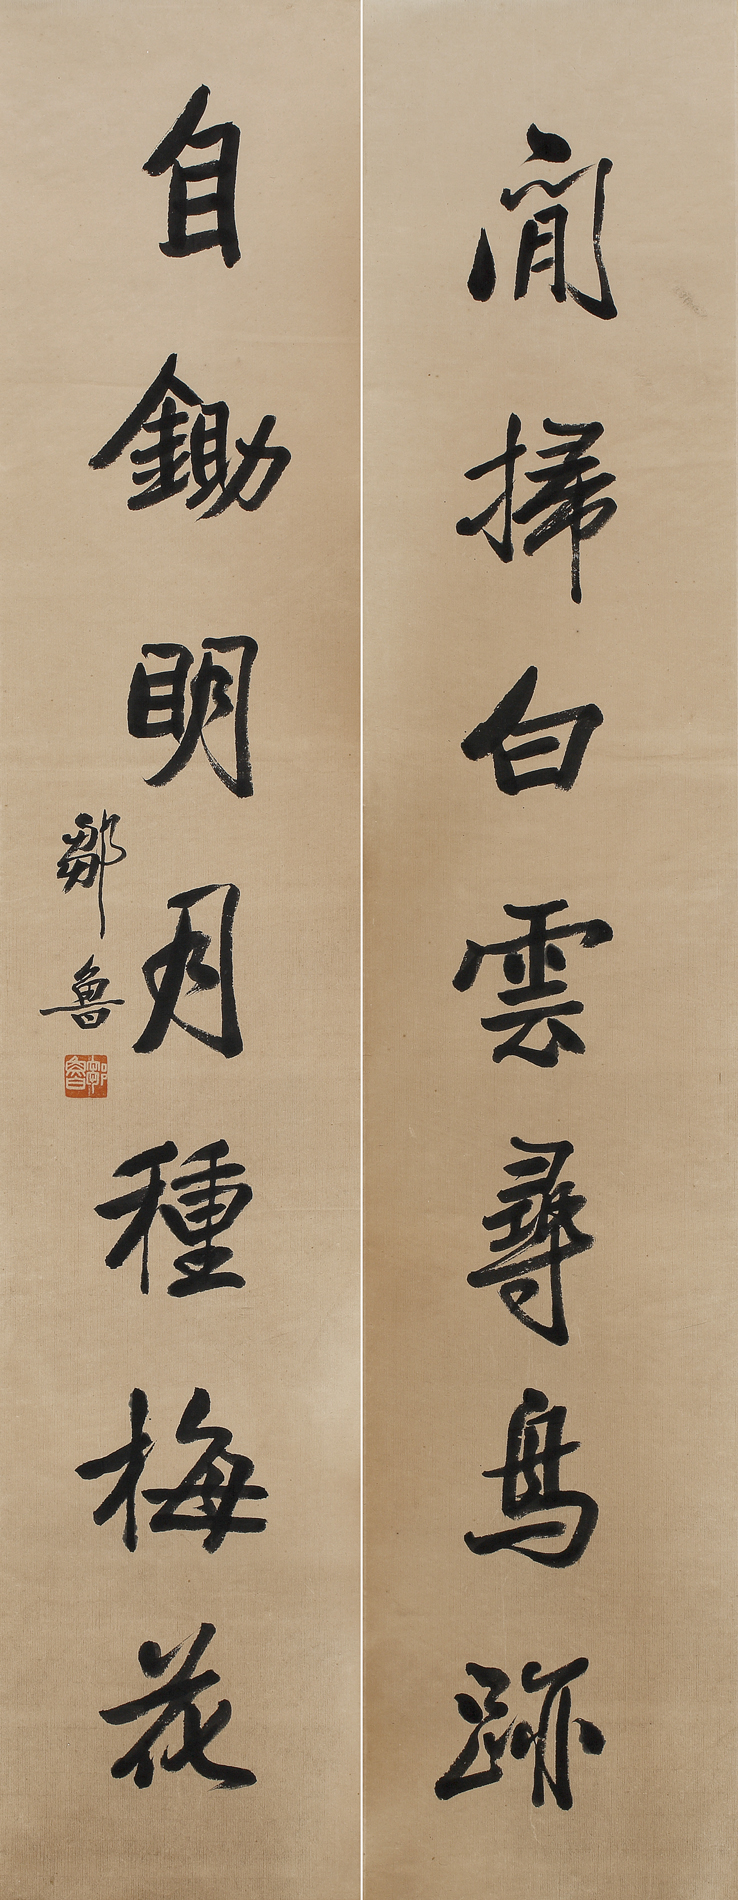 閒掃白雲尋鳥跡
自鋤明月種梅花
鄒魯
鄒魯